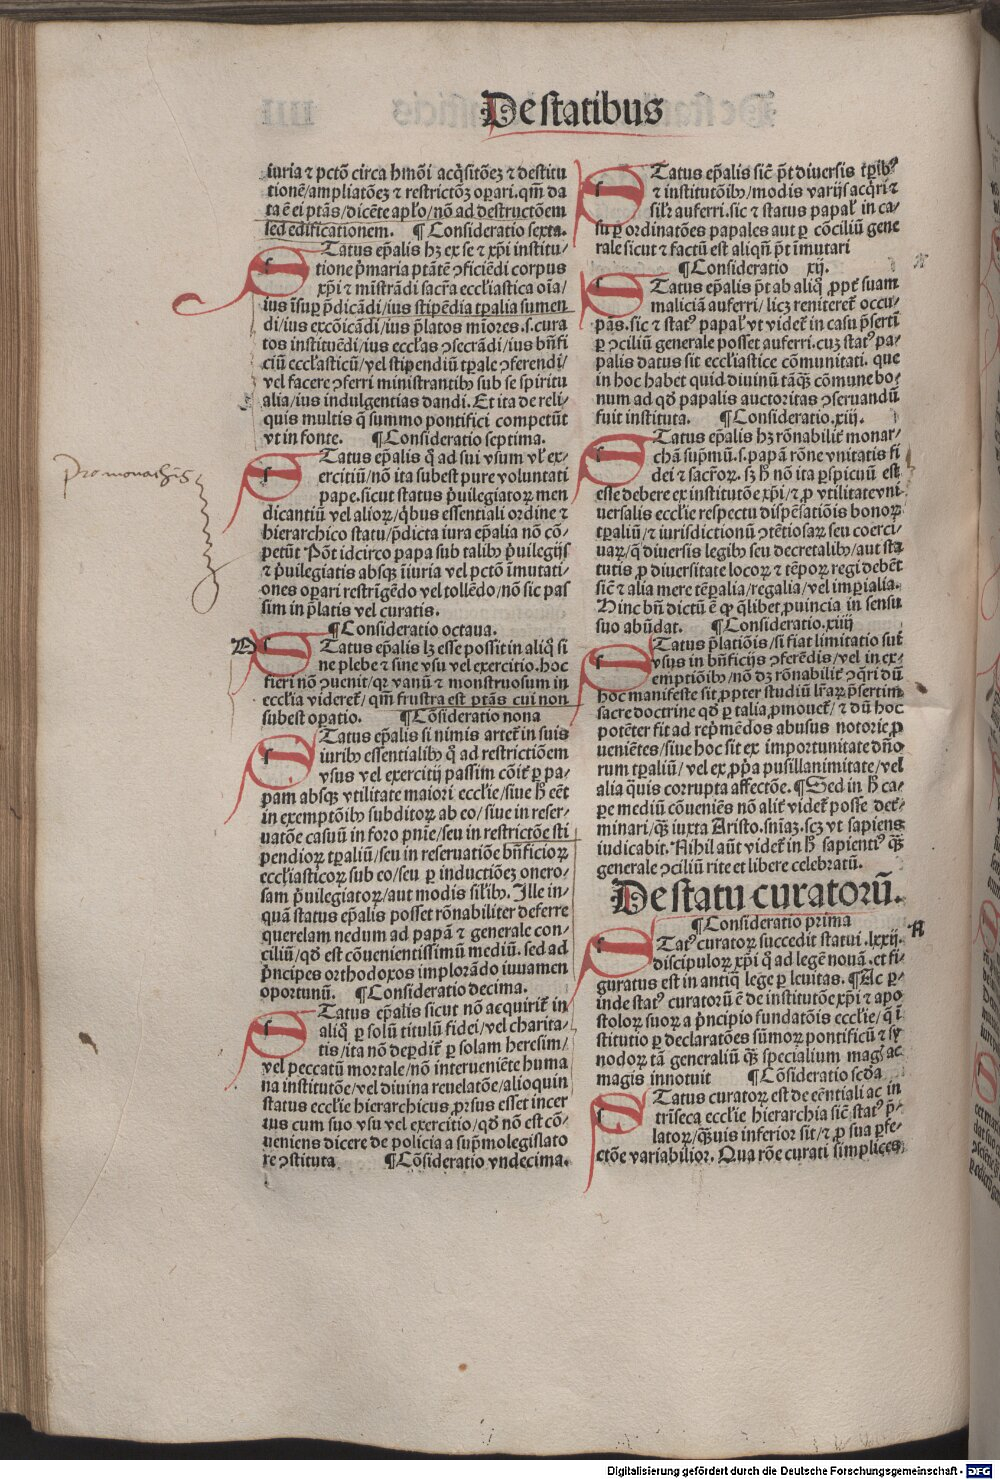 De statibus
iuria ⁊ pctõ circa hmõi acq̃sitõeʒ ⁊ destitu
tionẽ/ampliatõeʒ ⁊ restrictõeʒ opari. qm̃ da
ta ẽ ei ptãs/dicẽte apl'o/nõ ad destructõem
sed edificationem. ¶ Consideratio sexta.
STatus ep̃alis hʒ ex se ⁊ xp̃i institu-
tione p̃maria ptãtẽ ꝯficiẽdi corpus
xp̃i ⁊ mĩstrãdi sacr̃a eccl'iastica oĩa/
ius ĩsuꝑ p̃dicãdi/ius stipẽdia tp̃alia sumen
di/ius excõicãdi/ius p̃latos mĩores .s. cura
tos instituẽdi/ius eccl'as ꝯsecrãdi/ius bñfi
ciũ eccl'asticũ/vel stipendiũ tp̃ale ꝯferendi/
vel facere ꝯferri ministrantibꝰ sub se spiritu
alia/ius indulgentias dandi. Et ita de reli-
quis multis q̃ summo pontifici competũt
vt in fonte. ¶ Consideratio septima.
STatus ep̃alis q̃ ad sui vsum vl' ex-
ercitiũ/nõ ita subest pure voluntati
pape. sicut status p̃uilegiatoꝝ men
dicantiũ vel alioꝝ/q̃bus essentiali ordine ⁊
hierarchico statu/p̃dicta iura ep̃alia nõ cõ-
petũt Põt idcirco papa sub talibꝰ p̃uilegijs
⁊ p̃uilegiatis absqʒ ĩiuria vel pctõ ĩmutati-
ones opari restrĩgẽdo vel tollẽdo/nõ sic pas
sim in p̃latis vel curatis.
¶ Consideratio octaua.
STatus ep̃alis lʒ esse possit in aliq̃ si
ne plebe ⁊ sine vsu vel exercitio. hoc
fieri nõ ꝯuenit/qꝛ vanũ ⁊ monstruosum in
eccl'ia videret̃/ qm̃ frustra est ptãs cui non
subest opatio. ¶ Cõsideratio nona
STatus ep̃alis si nimis artet̃ in suis
iuribꝰ essentialibꝰ q̃ ad restrictiõem
vsus vel exercitij passim cõit̃ ꝑ pa-
pam absqʒ vtilitate maiori eccl'ie/siue h̃ eẽt
in exemptõibꝰ subditoꝝ ab eo/ siue in reser-
uatõe casuũ in foro pnĩe/seu in restrictõe sti
pendioꝝ tp̃aliũ/seu in reseruatiõe bñficioꝝ
eccl'iasticoꝝ sub eo/seu ꝑ inductiõeʒ onero-
sam p̃uilegiatoꝝ/aut modis sil'ibꝰ. Ille in-
quã status ep̃alis posset rõnabiliter deferre
querelam nedum ad papã ⁊ generale con-
ciliũ/qd̃ est cõuenientissimũ mediũ. sed ad
p̃ncipes orthodoxos implorãdo iuuamen
oportunũ. ¶ Consideratio decima.
STatus ep̃alis sicut nõ acquirit̃ in
aliq̃ ꝑ solũ titulũ fidei/vel charita-
tis/ita nõ deꝑdit̃ ꝑ solam heresim/
vel peccatũ mortale/nõ interueniẽte huma
na institutõe/vel diuina reuelatõe/alioquin
status eccl'ie hierarchicus ꝓrsus esset incer
tus cum suo vsu vel exercitio/qd̃ nõ est cõ-
ueniens dicere de policia a sup̃mo legislato
re ꝯstituta ¶ Cõsideratio vndecima.
STatus ep̃alis sic̃ p̃t diuersis tp̃ibꝰ
⁊ institutõibꝰ/modis varijs acq̃ri ⁊
sil'r auferri. sic ⁊ status papal' in ca-
su ꝑ ordinatões papales aut ꝑ cõciliũ gene
rale sicut ⁊ factũ est aliqñ p̃t ĩmutari
¶ Consideratio xij.
STatus ep̃alis p̃t ab aliq̃ ꝓpt̃ suam
maliciã auferri/ licʒ reniteret̃ occu-
pãs. sic ⁊ statꝰ papal' vt videt̃ in casu p̃serti
ꝑ ꝯciliũ generale posset auferri. cuʒ statꝰ pa-
palis datus sit eccl'iastice cõmunitati. que
in hoc habet quid diuinũ tãqʒ cõmune bo-
num ad qd̃ papalis auctoritas ꝯseruandũ
fuit instituta. ¶ Consideratio. xiij.
STatus ep̃alis hʒ rõnabilit̃ monar-
chã sup̃mũ .s. papã rõne vnitatis fi
dei ⁊ sacr̃oꝝ. sʒ h̃ nõ ita ꝑspicuũ est
esse debere ex institutõe xp̃i/⁊ ꝓ vtilitate vni
uersalis eccl'ie respectu dispẽsatiõis bonoꝝ
tp̃aliũ/⁊ iurisdictionũ ꝯtẽtiosaꝝ seu coerci-
uaꝝ/q̃ diuersis legibꝰ seu decretalibꝰ/aut sta
tutis ꝓ diuersitate locoꝝ ⁊ tẽpoꝝ regi debẽt
sic̃ ⁊ alia mere tẽp̃alia/regalia/vel imꝑialia.
Hinc bñ dictũ ẽ ꝙ q̃libet ꝓuincia in sensu
suo abũdat. ¶ Consideratio. xiiij
STatus p̃latiõis/si fiat limitatio sui
vsus in bñficijs ꝯferẽdis/vel in ex-
emptiõibꝰ/nõ dʒ rõnabilit̃ ꝯq̃ri dũ
hoc manifeste sit ꝓpter studiũ lr̃aꝝ p̃sertim
sacre doctrine qd̃ ꝑ talia ꝓmouet̃/ ⁊ dũ hoc
potẽter fit ad rep̃mẽdos abusus notorie ꝓ
uenietes/siue hoc sit ex importunitate dño
rum tp̃aliũ/ vel ex ꝓp̃a pusillanimitate/vel
alia q̃uis corrupta affectõe. ¶ Sed in h̃ ca-
ꝑe mediũ cõueniẽs nõ alit̃ videt̃ posse det̃-
minari/qʒ̃ iuxta Aristo. sniãʒ. scʒ vt sapiens
iudicabit. Nihil aũt videt̃ in h̃ sapientiꝰ qʒ̃
generale ꝯciliũ rite et libere celebratũ.
De statu curatorũ.
¶ Consideratio prima
STatꝰ curatoꝝ succedit statui .lxxij.
discipuloꝝ xp̃i q̃ ad legẽ nouã. et fi-
guratus est in antiq̃ lege ꝑ leuitas. ¶ Ac ꝑ-
inde statꝰ curatoꝝ ẽ de institutõe xp̃i ⁊ apo
stoloꝝ suoꝝ a p̃ncipio fundatõis eccl'ie/ q̃ ĩ
stitutio ꝑ declaratões sũmoꝝ pontificũ ⁊ sy
nodoꝝ tã generaliũ qʒ̃ specialium magꝭ ac
magis innotuit ¶ Cõsideratio scďa
STatus curatoꝝ est de eẽntiali ac in
trĩseca eccl'ie hierarchia sic̃ statꝰ p̃-
latoꝝ/qʒ̃uis inferior sit/⁊ ꝓ sua ꝑfe-
ctõe variabilior. Qua rõe curati simplices
Pro monachis
D
A
Digitalisierung gefördert durch die Deutsche Forschungsgemeinschaft - DFG